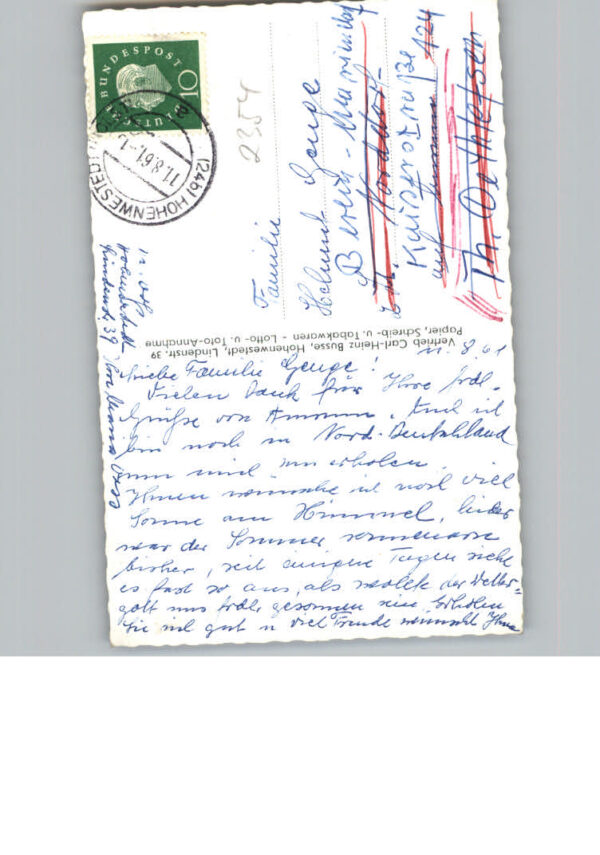 DEUTSCHE
BUNDESPOST
10
(24b) HOHENWESTEDT
11.8.61.-1
2354
Familie
Helmut Genge
Berlin-
Norddorf
124
Th. Dethlefsen
Vertrieb Carl-Heinz Busse, Hohenwestedt, Lindenstr. 39
Papier, Schreib- u. Tabakwaren - Lotto- u. Toto-Annahme
11.8.61
Liebe Familie Genge!
Vielen Dank für Ihre frdl.
Grüße von Amrum. Auch ich
bin noch in Nord-Deutschland
um mich zu erholen.
Ihnen wünsche ich noch viel
Sonne am Himmel, leider
war der Sommer sonnenarm
bisher, seit einigen Tagen sieht
es fast so aus, als wollte der Wetter-
gott uns frdl. gesonnen sein. Erholen
Sie sich gut u viel Freude wünscht Ihnen
z. Zt.
Hohenwestedt
Lindenstr. 39